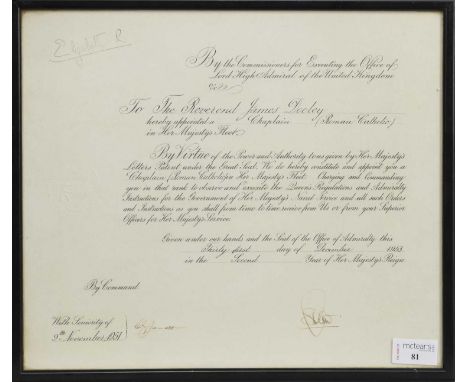 Elizabeth R
By the Commissioners for Executing the Office of
Lord High Admiral of the United Kingdom
To The Reverend James Dooley
hereby appointed a Chaplain (Roman Catholic)
in Her Majesty's Fleet.
By Virtue of the Power and Authority to us given by Her Majesty's
Letters Patent under the Great Seal, We do hereby constitute and appoint you a
Chaplain (Roman Catholic) in Her Majesty's Fleet. Charging and Commanding
you in that rank to observe and execute the Queen's Regulations and Admiralty
Instructions for the Government of Her Majesty's Naval Service and all such Orders
and Instructions as you shall from time to time receive from Us or from your Superior
Officers for Her Majesty's Service.
Given under our hands and the Seal of the Office of Admiralty this
Thirty first day of December 1953
in the Second Year of Her Majesty's Reign
By Command
With Seniority of
9th November, 1951
mctear's
81